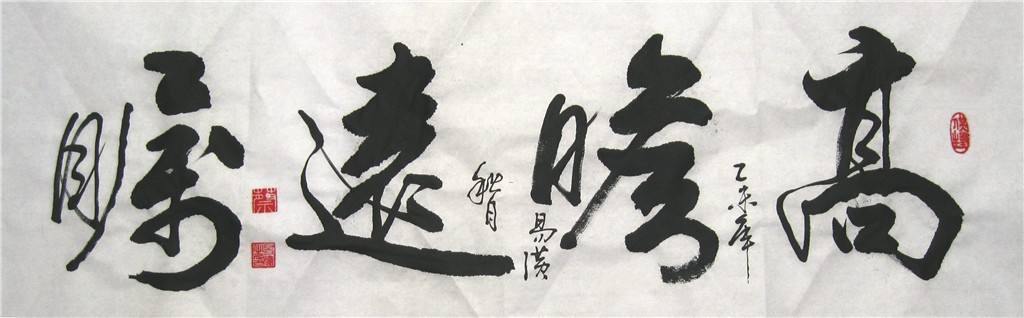 高瞻遠矚
乙未年
秋月
易